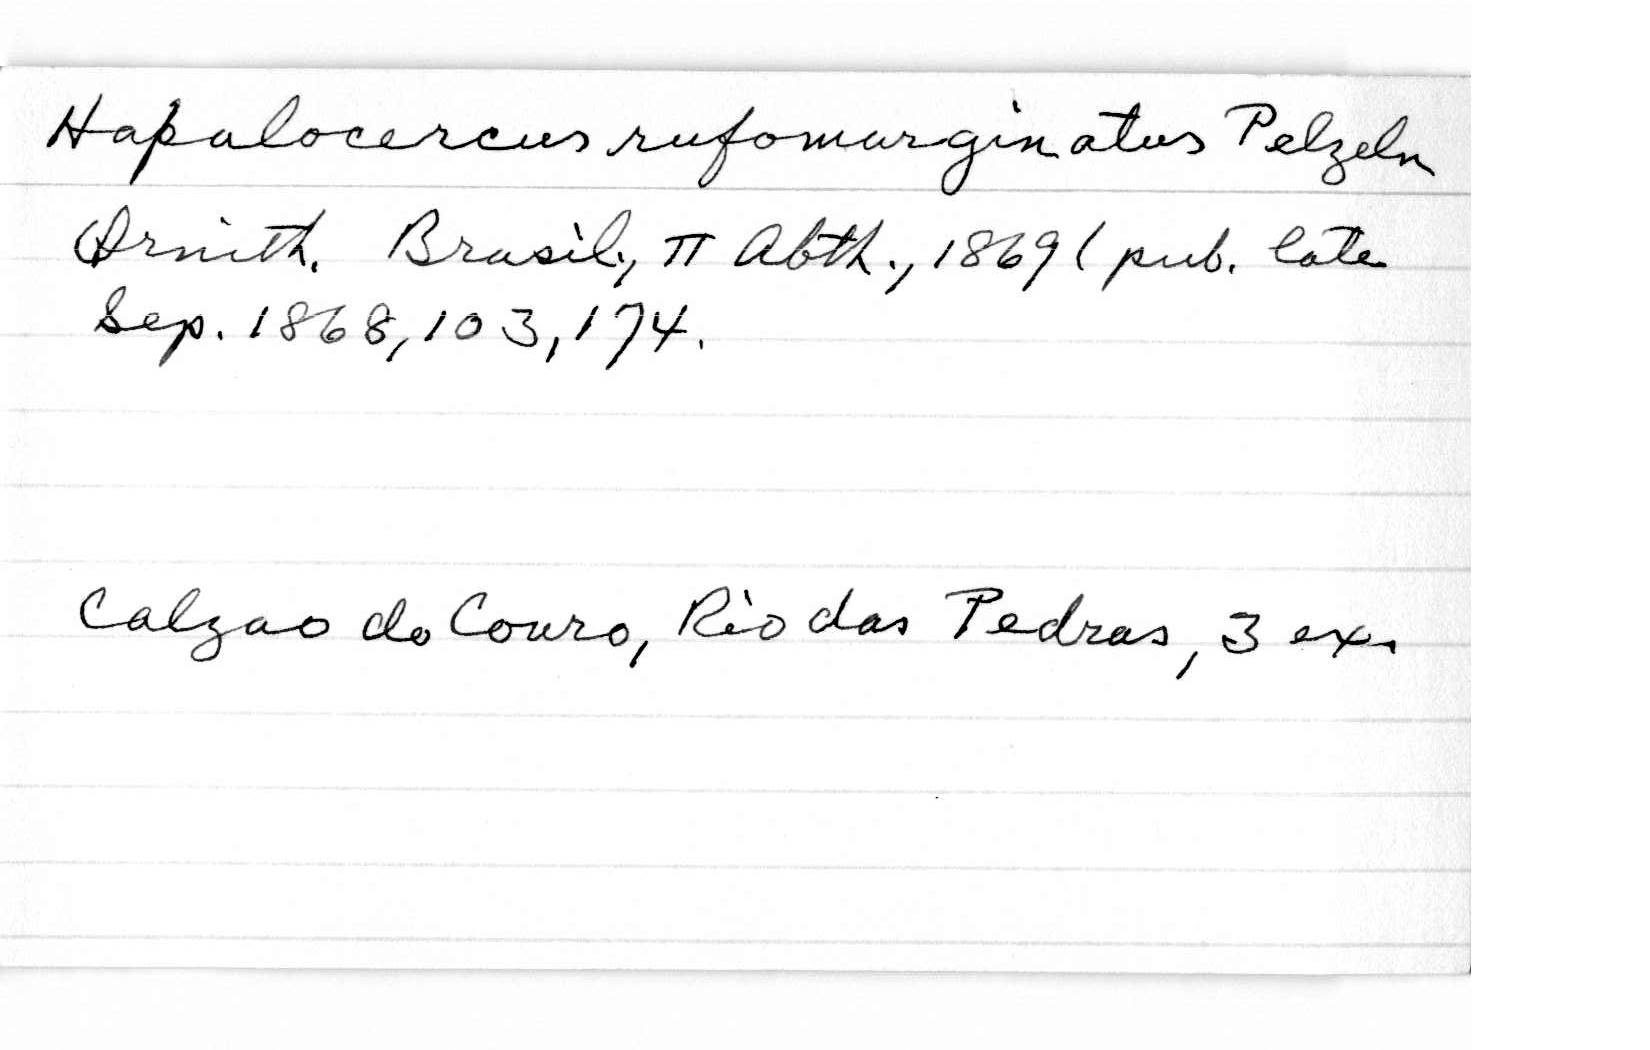 Hapalocercus rufomarginatus Pelzeln
Ornith. Brasil., II Abth., 1869 (pub. late
Sep. 1868, 103, 174.
Calzao do Couro, Rio das Pedras, 3 ex.